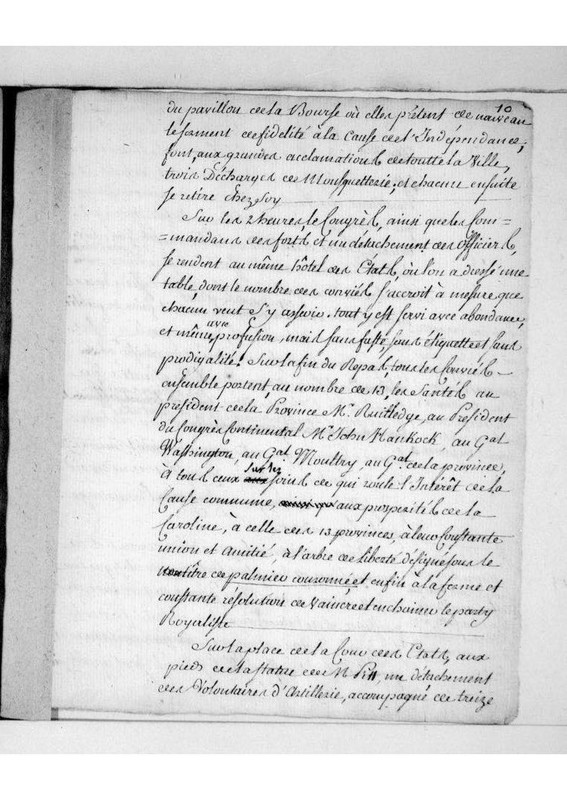 10
du pavillon de la Bourse où elles prêtent de nouveau
le serment de fidelité à la Cause de l'Indépendance,
font, aux grandes acclamations de toutte la Ville,
trois Décharges de Mousquetterie, et chacun ensuite
se retire chez soy
Sur les 2 heures, le Congrès, ainsi que les Com=
=mandans des forts et un détachement des Officiers,
se rendent au même hôtel des Etats, où l'on a dressé une
table, dont le nombre des conviés s'accroit à mesure que
chacun veut s'y asseoir. tout y est servi avec abondance,
et même avec profusion, mais sans faste, sans étiquette et sans
prodigalité. Sur la fin du Repas, tous les Conviés
ensemble portent, au nombre de 13, les Santés au
président de la Province Mr. Rutledge, au President
du Congrès Continental Mr. John Hankock, au Gal.
Washington, au Gal. Moultry, au Gal. de la province,
à tous ceux sur les soins de qui roule l'Intérêt de la
Cause commune, aux prospérités de la
Caroline, à celle des 13 provinces, à leur Constante
union et Amitié, à l'arbre de Liberté désigné sous le
titre de palmier couronné, et enfin à la ferme et
constante résolution de vaincre et enchainer le party
Royaliste
Sur la place de la Cour des Etats, aux
pieds de la statue de M. Pitt, un détachement
des Volontaires d'Artillerie, accompagné de treize